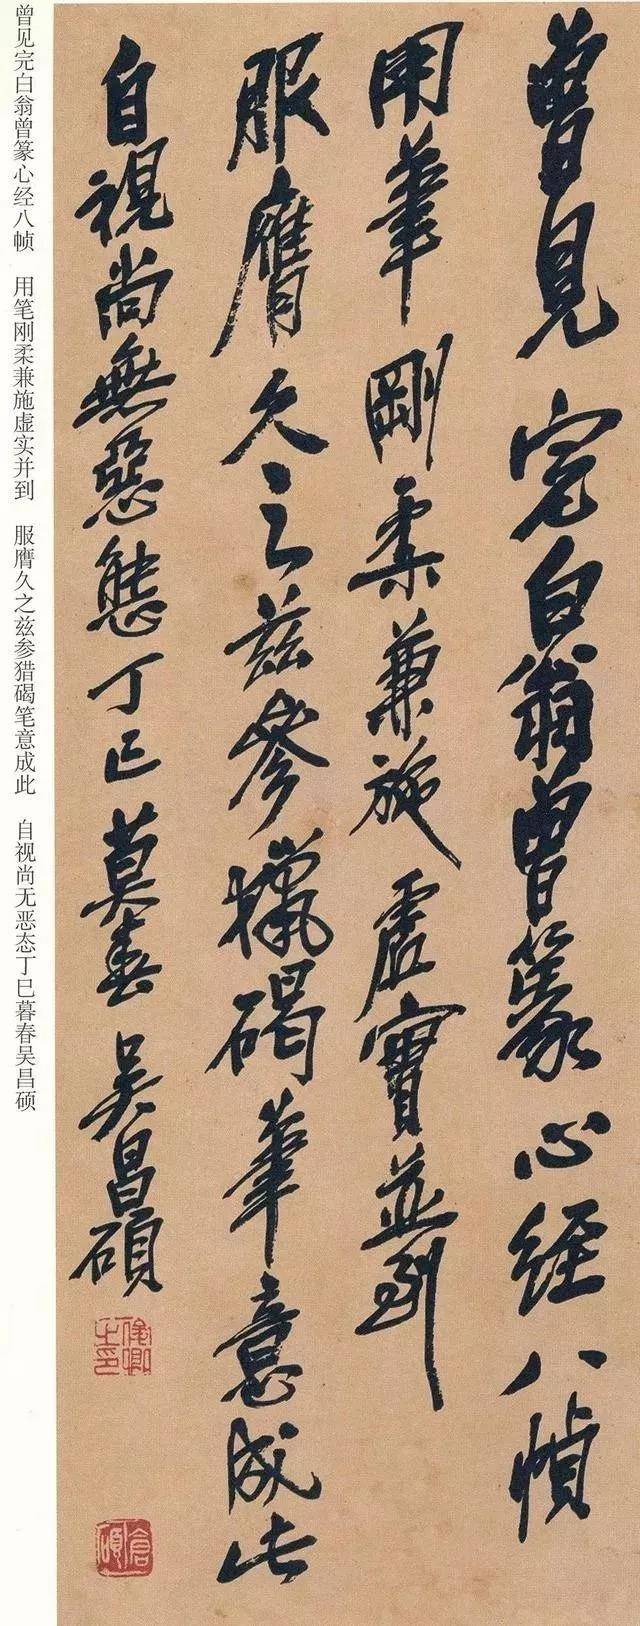 曾見完白翁曾篆心經八幀
用筆剛柔兼施虛實並到
服膺久之茲參獵碣筆意成此
自視尚無惡態丁巳莫春吳昌碩
俊卿之印
倉碩
曾见完白翁曾篆心经八帧 用笔刚柔兼施虚实并到 服膺久之兹参猎碣笔意成此 自视尚无恶态丁巳暮春吴昌硕